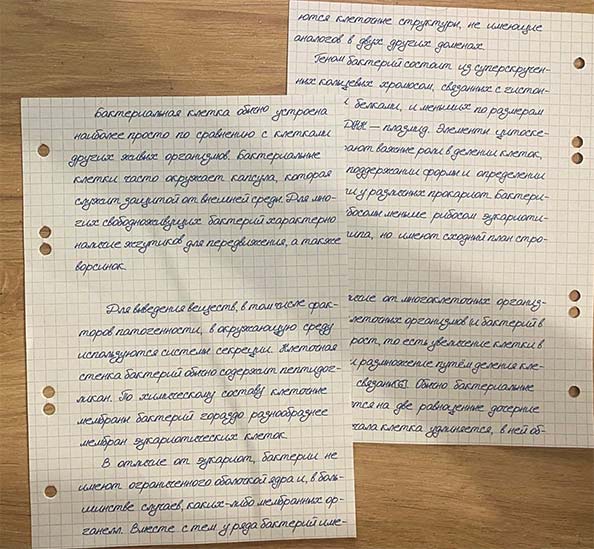 Бактериальная клетка обычно устроена
наиболее просто по сравнению с клетками
других живых организмов. Бактериальные
клетки часто окружает капсула, которая
служит защитой от внешней среды. Для мно-
гих свободноживущих бактерий характерно
наличие жгутиков для передвижения, а также
ворсинок.
Для выведения веществ, в том числе фак-
торов патогенности, в окружающую среду
используются системы секреции. Клеточная
стенка бактерий обычно содержит пептидог-
ликан. По химическому составу клеточные
мембраны бактерий гораздо разнообразнее
мембран эукариотических клеток.
В отличие от эукариот, бактерии не
имеют ограниченного оболочкой ядра и, в боль-
шинстве случаев, каких-либо мембранных ор-
ганелл. Вместе с тем у ряда бактерий име-
ются клеточные структуры, не имеющие
аналогов в двух других доменах.
Геном бактерий состоит из суперскручен-
ных кольцевых хромосом, связанных с гистон-
белками, и меньших по размерам
ДНК — плазмид. Элементы цитоске-
ают важные роли в делении клеток,
поддержании формы и определении
и у различных прокариот. Бактери-
босомы меньше рибосом эукариоти-
ипа, но имеют сходный план стро-
чие от многоклеточных организ-
леточных организмов и бактерий в
рост, то есть увеличение клетки в
и размножение путём деления кле-
связаны[5]. Обычно бактериальные
тся на две равноценные дочерние
чала клетка удлиняется, в ней об-